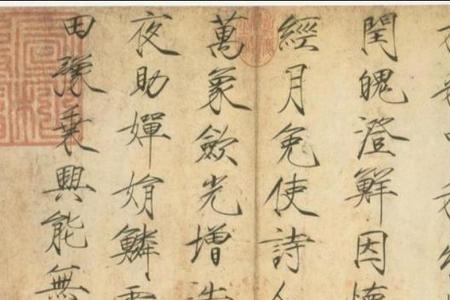 閏魄澄鮮因懷
經月免使詩人
萬象歛光增浩
夜助嬋娟鱗雲
田豫乘興能無